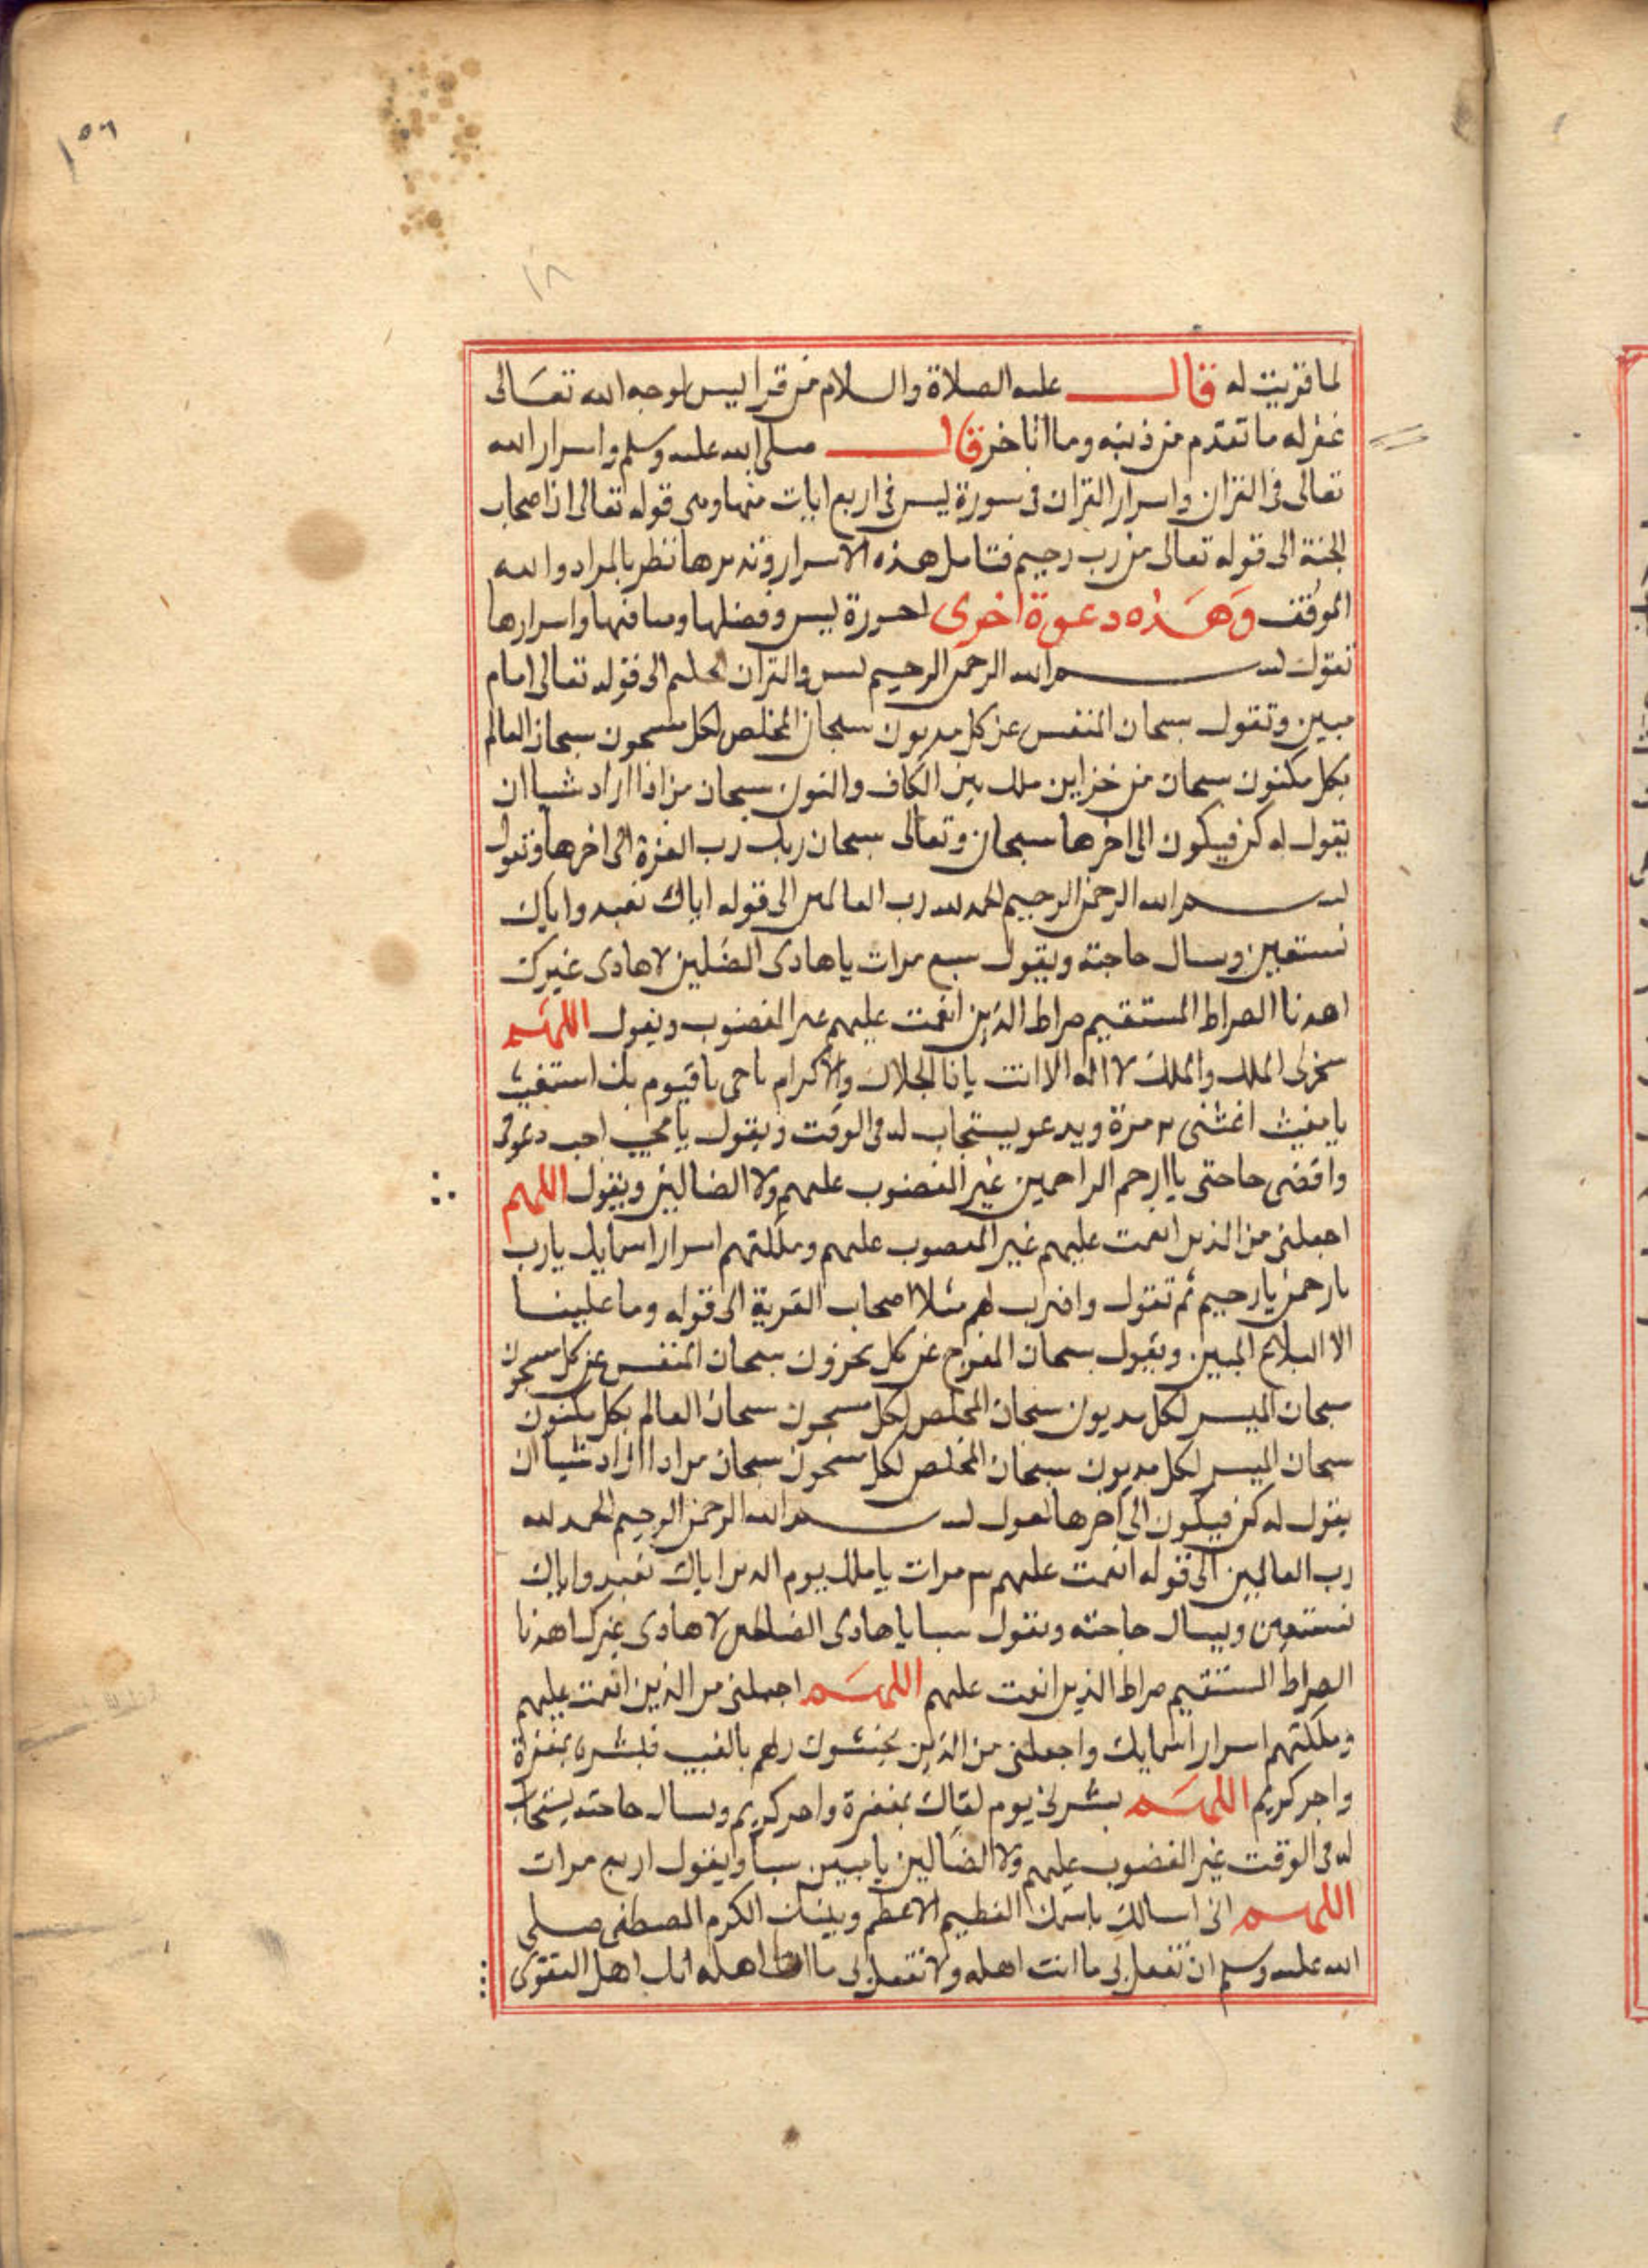 ١٥٦
١٨
لما قريت له قال عليه الصلاة والسلام من قرا يس لوجه الله تعالى
غفر له ما تقدم من ذنبه وما تاخر قال صلى الله عليه وسلم واسرار الله
تعالى في القران واسرار القران في سورة يس في اربع ايات منها وهي قوله تعالى ان اصحاب
الجنة الى قوله تعالى من رب رحيم فتامل هذه الاسرار وتدبرها تظفر بالمراد والله
الموفق وهذه دعوة اخرى لسورة يس وفضلها ومنافعها واسرارها
تقول بسم الله الرحمن الرحيم يس والقران الحكيم الى قوله تعالى امام
مبين وتقول سبحان المنفس عن كل مديون سبحان المخلص لكل مسجون سبحان العالم
بكل مكنون سبحان من خزاين ملكه بين الكاف والنون سبحان من اذا اراد شيا ان
يقول له كن فيكون الى اخرها سبحان وتعالى سبحان ربك رب العزة الى اخرها وتقول
بسم الله الرحمن الرحيم الحمد لله رب العالمين الى قوله اياك نعبد واياك
نستعين ويسال حاجته ويقول سبع مرات يا هادى الضلين لا هادى غيرك
اهدنا الصراط المستقيم صراط الذين انعمت عليهم غير المغضوب ويقول اللهم
سخر لى الملك والملك لا اله الا انت يا ذا الجلال والاكرام يا حى يا قيوم بك استغيث
يا مغيث اغثنى ٣ مرة ويدعو يستجاب له فى الوقت ويقول يا مجيب اجب دعوتى
واقضى حاجتى يا ارحم الراحمين غير المغضوب عليهم ولا الضالين ويقول اللهم
اجعلنى من الذين انعمت عليهم غير المغضوب عليهم وملكتهم اسرار اسمايك يا رب
يا رحمن يا رحيم ثم تقول واضرب لهم مثلا اصحاب القرية الى قوله وما علينا
الا البلاغ المبين ويقول سبحان المفرج عن كل محزون سبحان المنفس عن كل مسجون
سبحان الميسر لكل مديون سبحان المخلص لكل مسجون سبحان العالم بكل مكنون
سبحان الميسر لكل مديون سبحان المخلص لكل مسجون سبحان من اذا اراد شيا ان
يقول له كن فيكون الى اخرها تقول بسم الله الرحمن الرحيم الحمد لله
رب العالمين الى قوله انعمت عليهم ٣ مرات يا ملك يوم الدين اياك نعبد واياك
نستعين ويسال حاجته ويقول سبعا يا هادى الضالين لا هادى غيرك اهدنا
الصراط المستقيم صراط الذين انعمت عليهم اللهم اجعلنى من الذين انعمت عليهم
وملكتهم اسرار اسمايك واجعلنى من الذين يخشون ربهم بالغيب فبشره بمغفرة
واجر كريم اللهم بشرنى يوم لقاك بمغفرة واجر كريم ويسال حاجته يستجاب
له فى الوقت غير المغضوب عليهم ولا الضالين يا مبين سبعا ويقول اربع مرات
اللهم انى اسالك باسمك العظيم الاعظم وبنبيك الكرم المصطفى صلى
الله عليه وسلم ان تفعل بى ما انت اهله ولا تفعل بى ما انا اهله انك اهل التقوى